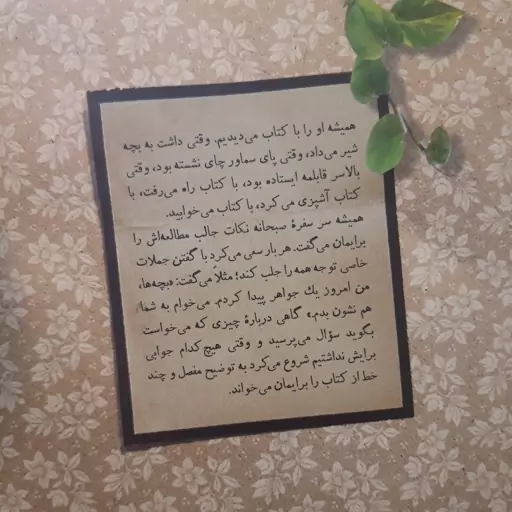 همیشه او را با کتاب می‌دیدیم. وقتی داشت به بچه
شیر می‌داد، وقتی پای سماور چای نشسته بود، وقتی
بالاسر قابلمه ایستاده بود، با کتاب راه می‌رفت، با
کتاب آشپزی می‌کرد، با کتاب می‌خوابید.
همیشه سر سفرهٔ صبحانه نکات جالب مطالعه‌اش را
برایمان می‌گفت. هر بار سعی می‌کرد با گفتن جملات
خاصی توجه همه را جلب کند؛ مثلاً می‌گفت: «بچه‌ها،
من امروز یك جواهر پیدا کردم. می‌خوام به شما
هم نشون بدم.» گاهی دربارهٔ چیزی که می‌خواست
بگوید سؤال می‌پرسید و وقتی هیچ کدام جوابی
برایش نداشتیم شروع می‌کرد به توضیح مفصل و چند
خط از کتاب را برایمان می‌خواند.